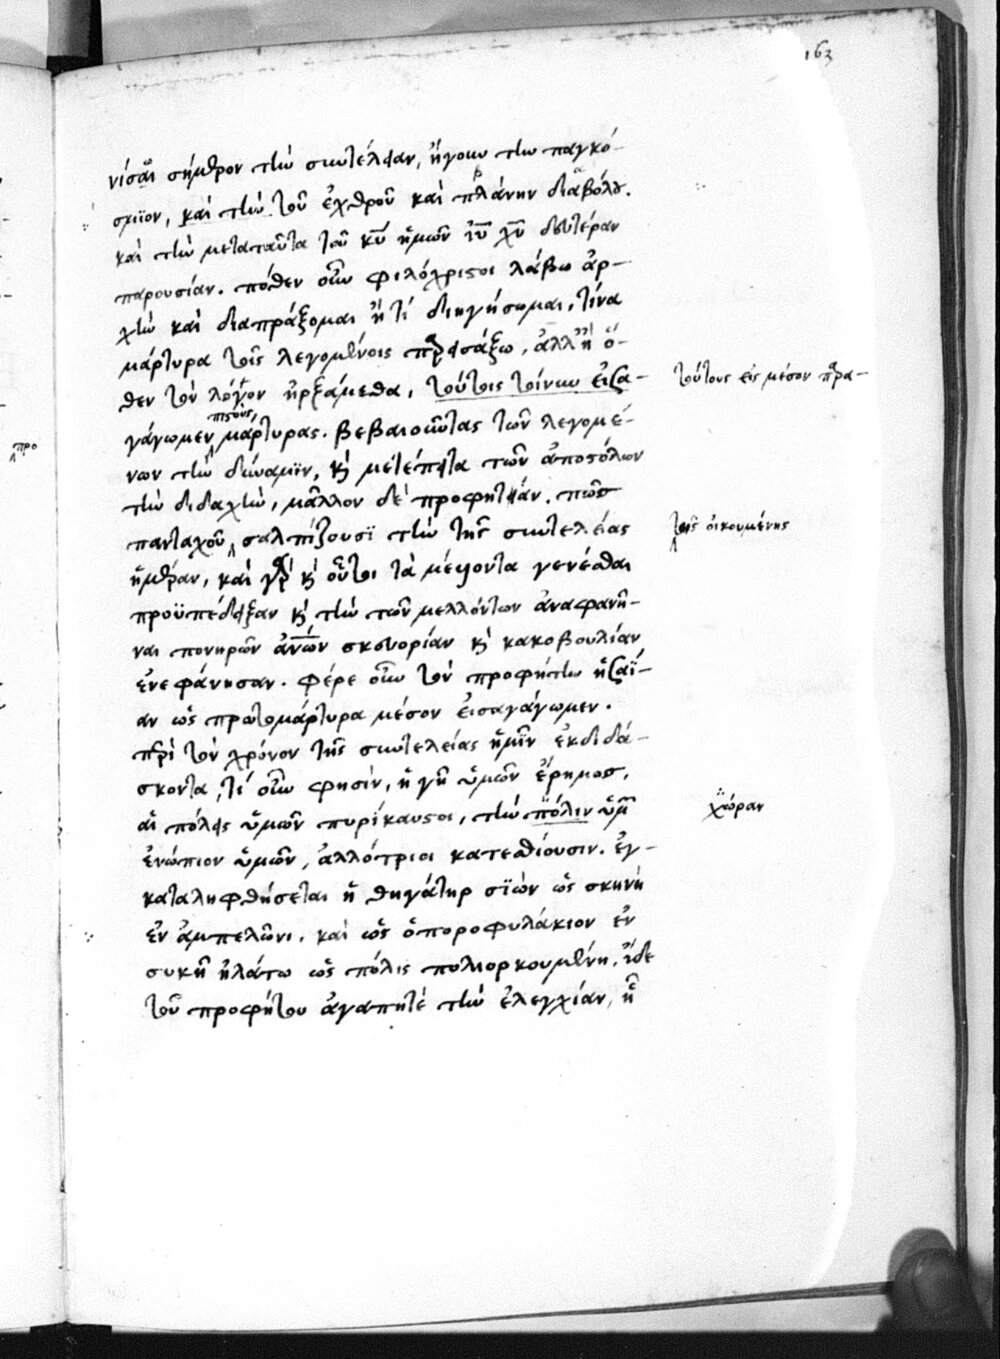 163
νίσαι σήμερον τὴν συντέλειαν, ἤγουν τὴν παγκό-
σμϊον, καὶ τὴν τοῦ ἐχθροῦ καὶ πλάνην διαβόλου.
καὶ τὴν μεταταῦτα τοῦ κυ ἡμῶν ιυ χυ δευτέραν
παρουσίαν. πόθεν οὖν φιλόχριστοι λάβω ἀρ-
χὴν καὶ διαπράξομαι ἢ τί διηγήσωμαι, τίνα
μάρτυρα τοῖς λεγομένοις, ἀλλ' ἢ ὅ-
θεν τὸν λόγον ἠρξάμεθα, τούτοις τοίνυν εἰσα-
τούτους εἰς μέσον παρα-
γάγωμεν πιστοὺς μάρτυρας. βεβαιοῦντας τῶν λεγομέ-
προ
νων τὴν δύναμϊν, κὶ μετέπειτα τῶν ἀποστόλων
τὴν διδαχὴν, μᾶλλον δὲ προφητείαν. πῶς
πανταχοῦ σαλπίζουσϊ τὴν τῆς συντελείας
τῆς οἰκουμένης
ἡμέραν, καὶ γὰρ κὶ οὗτοι τὰ μέλλοντα γενέσθαι
προϋπέδειξαν κὶ τὴν τῶν μελλόντων ἀναφανῆ-
ναι πονηρῶν ἀνων σκευορίαν κὶ κακοβουλίαν
ἐνεφάνησαν. φέρε οὖν τὸν προφήτην ἡσαΐ-
αν ὡς πρωτομάρτυρα μέσον εἰσαγάγωμεν.
περὶ τὸν χρόνον τῆς συντελείας ἡμῖν ἐκδιδά-
σκοντα, τί οὖν φησίν, ἡ γῆ ὑμῶν ἔρημος,
αἱ πόλεις ὑμῶν πυρίκαυστοι, τὴν πόλιν ὑμῶν
χώραν
ἐνώπιον ὑμῶν, ἀλλότριοι κατεσθίουσιν. ἐγ-
καταληφθήσεται ἡ θηγάτηρ σϊὼν ὡς σκηνὴ
ἐν ἀμπελῶνι. καὶ ὡς ὀποροφυλάκιον ἐν
συκῆ ἡλάτω ὡς πόλις πολιορκουμένη. ἴδε
τοῦ προφήτου ἀγαπητὲ τὴν ἐλεγχίαν, ἣ